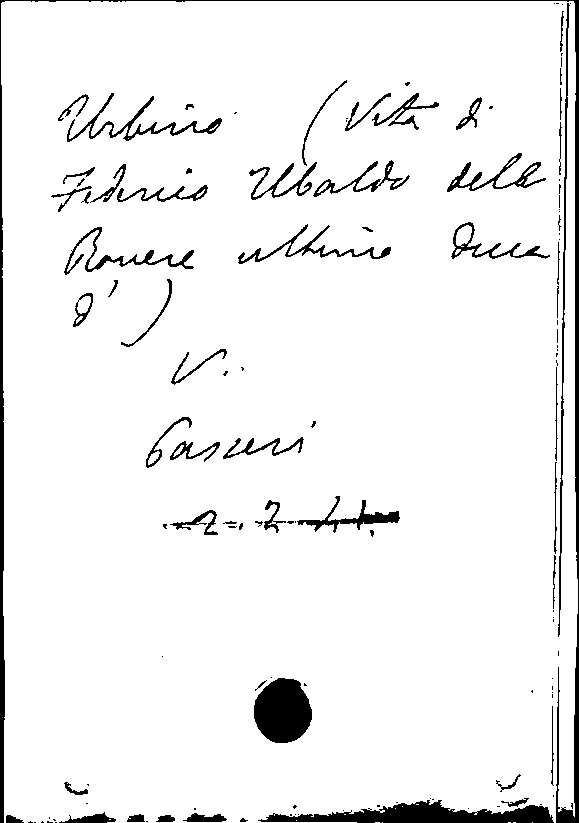 Urbino (Vita di
Federico Ubaldo della
Rovere ultimo duca
d')
V.
Passeri